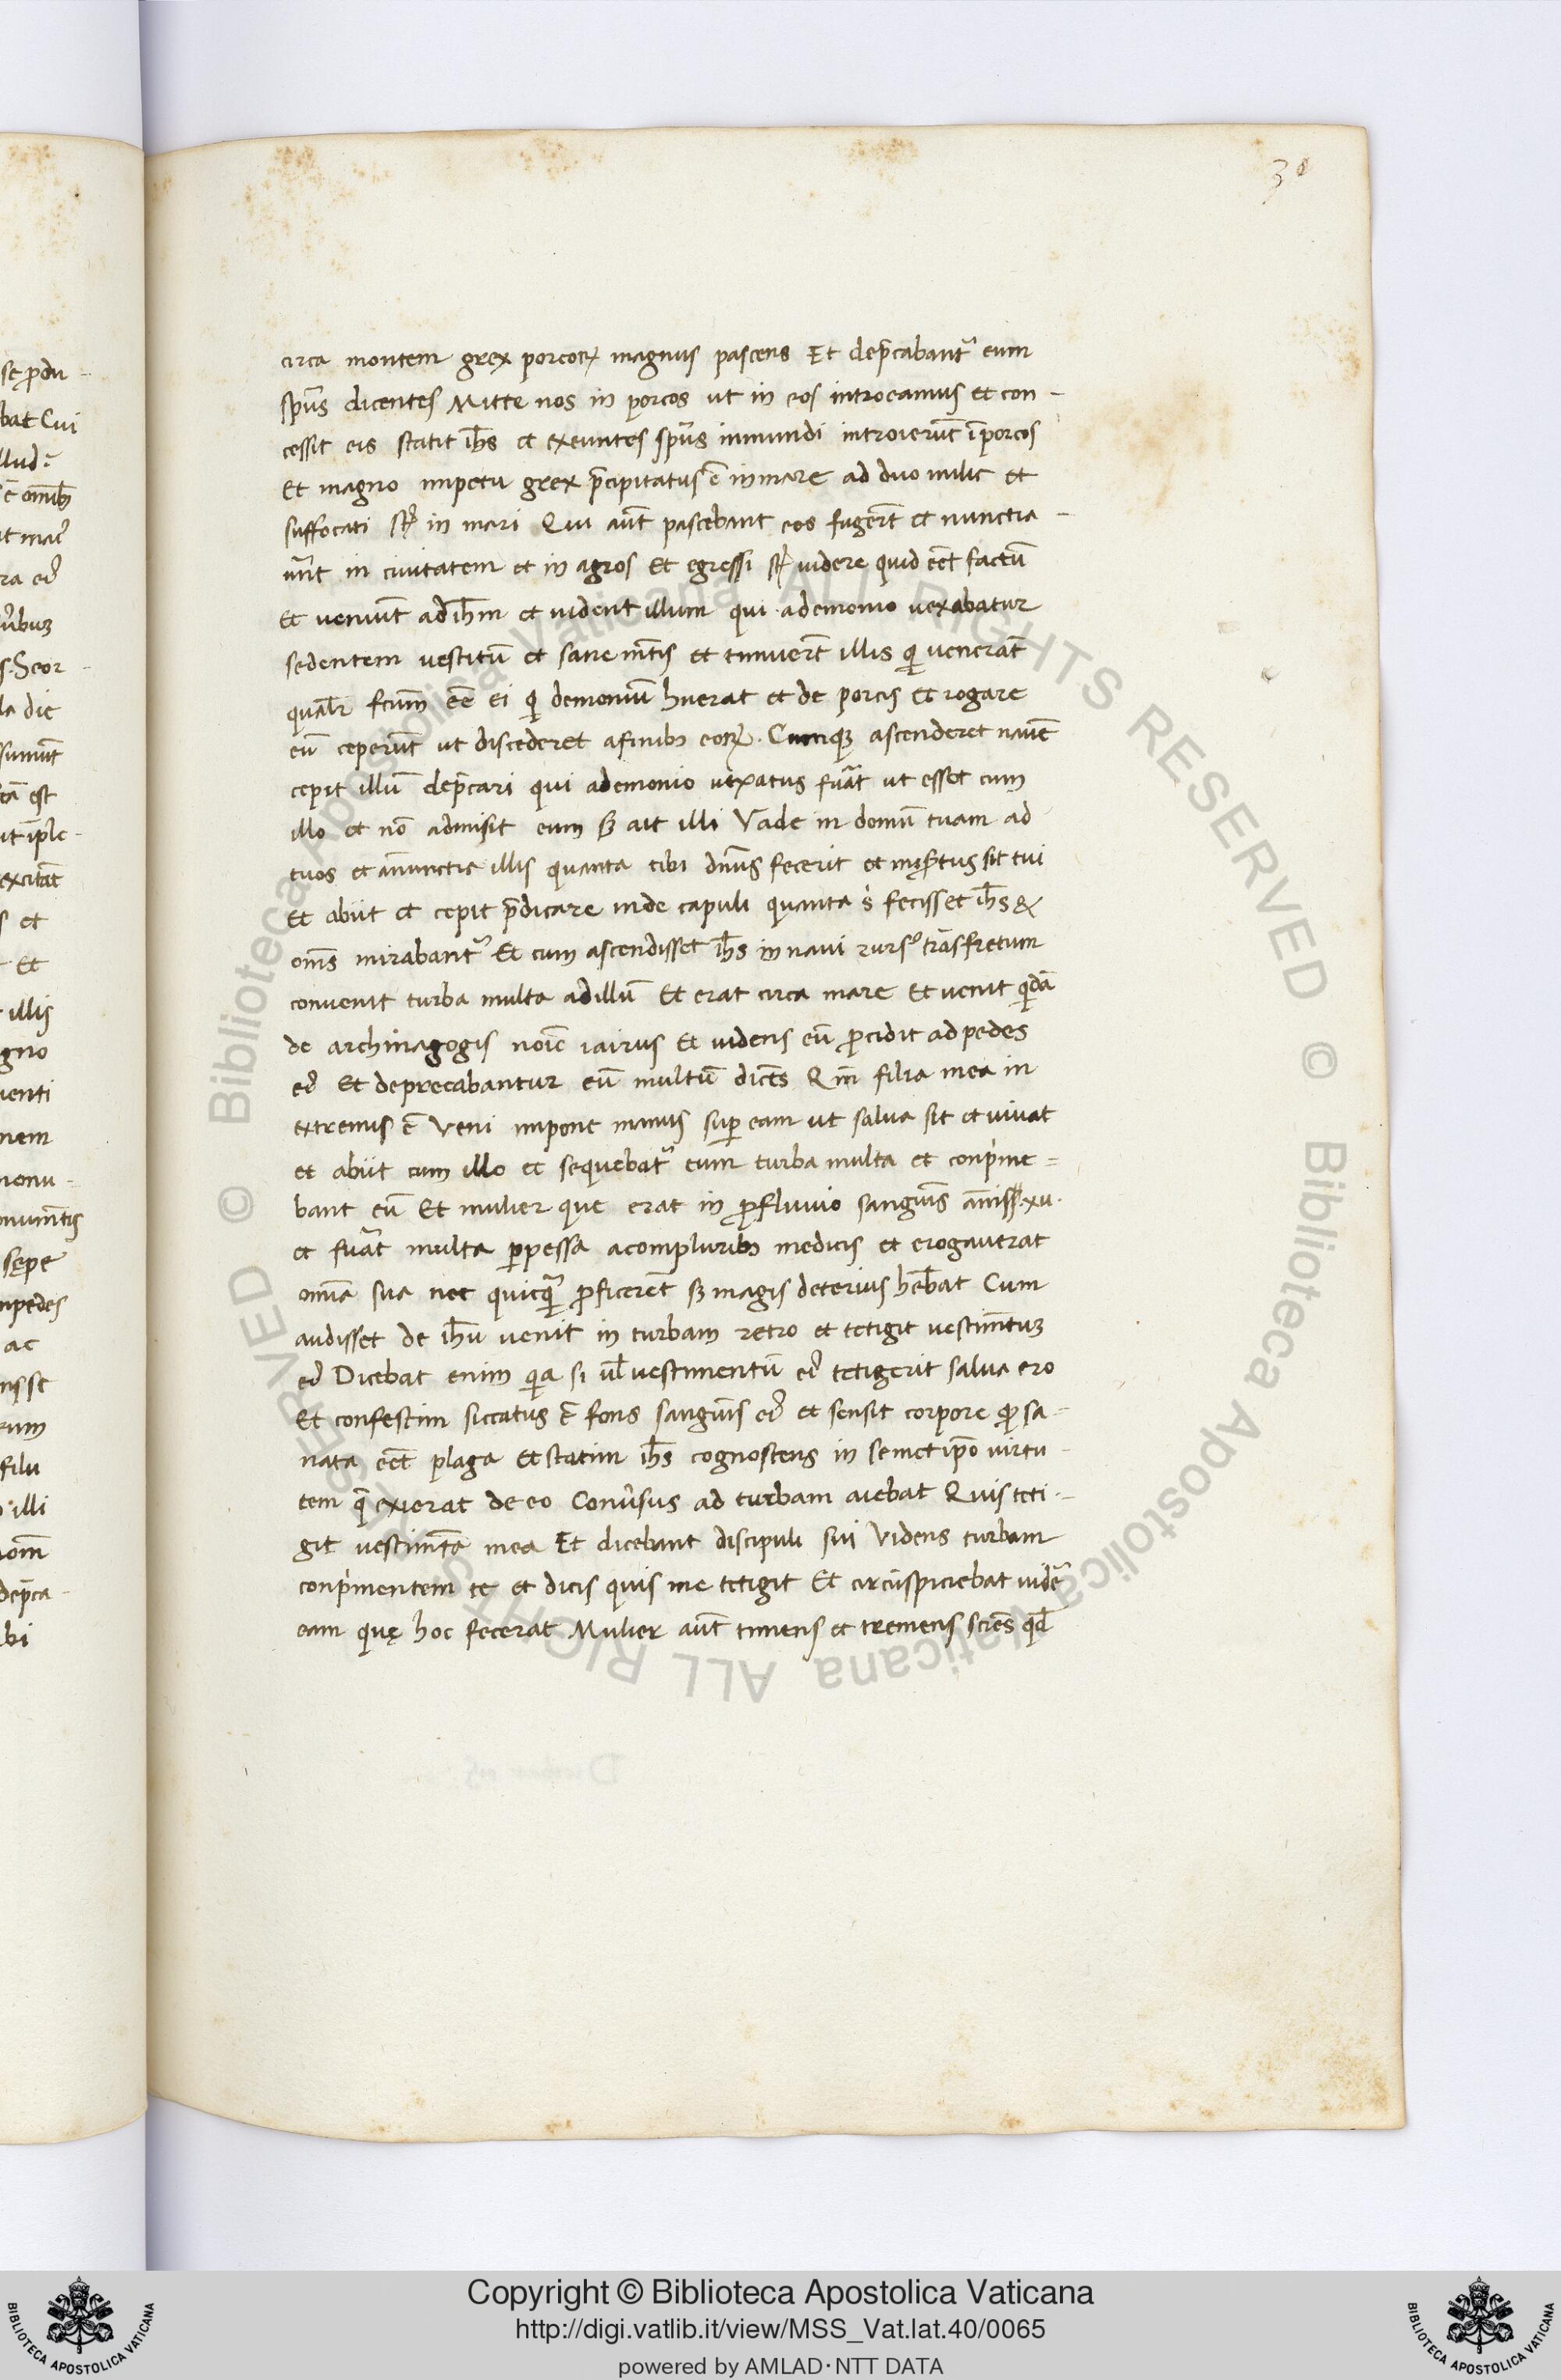 30
circa montem grex porcoꝝ magnus pascens Et dep̄cabantᷣ eum
sp̄us dicentes Mitte nos in porcos ut in eos introeamus et con-
cessit eis statit ih̄s et exeuntes sp̄us inmundi introierūt ī porcos
Et magno impetu grex p̄cipitatus ē in mare ad duo milie et
suffocati st̄ in mari Qui aūt pascebant eos fugert̄ et nunctia-
uert̄ in ciuitatem et in agros Et egressi st̄ uidere quid eēt factū
Et veniūt ad ih̄m et uident illum qui a demonio uexabatur
sedentem vestitū et sane mt̄is et timuert̄ illis qi venerāt
qual̄r fcūm eē ei qi demoniū huerat et de porcis Et rogare
eū ceperūt ut discederet a finibꝫ eoꝝ. Cumqꝫ ascenderet nauē
cepit illū dep̄cari qui a demonio uexatus fuāt ut esset cum
illo et nō admisit eum sꝫ ait illi Vade in domū tuam ad
tuos et ānunctia illis quanta tibi dn̄us fecerit et mis̄tus sit tui
Et abiit et cepit p̄dicare in decapuli quanta s̓ fecisset ih̄s &
oms̄ mirabantᷣ Et cum ascendisset ih̄s in naui rursꝰ trāsfretum
conuenit turba multa ad illū Et erat circa mare Et uenit qidā
de archinagogis noīe iairus Et uidens eū procidit ad pedes
eiꝰ Et deprecabantur eū multū dicēs Qm̄ filia mea in
extremis ē Veni impone manus suꝑ eam ut salua sit et uiuat
et abiit cum illo et sequebatᷣ eum turba multa et conp̓me=
bant eū Et mulier que erat in ꝓfluuio sanguīs ānis .xii.
et fuāt multa ꝑpessa a compluribꝫ medicis et erogauerat
omīa sua nec quicqᷓ ꝓficerēt sꝫ magis deterius heb̄at Cum
audisset de ih̄u uenit in turbam retro et tetigit vestimt̄uꝫ
eiꝰ Dicebat enim qia si ul̄ vestimentū eiꝰ tetigerit salua ero
Et confestim siccatus ē fons sanguīs eiꝰ et sensit corpore qi sa-
nata eēt plaga Et statim ih̄s cognoscens in semet ip̄o uirtu-
tem q̄ exierat de eo Conuersus ad turbam aiebat Quis teti-
git vestimt̄a mea Et dicebant discipuli sui Videns turbam
conp̓mentem te et dicis quis me tetigit Et circūspiciebat uidē
eam quę hoc fecerat Mulier aūt timens et tremens sciēs qd̄
Copyright © Biblioteca Apostolica Vaticana
http://digi.vatlib.it/view/MSS_Vat.lat.40/0065
powered by AMLAD·NTT DATA